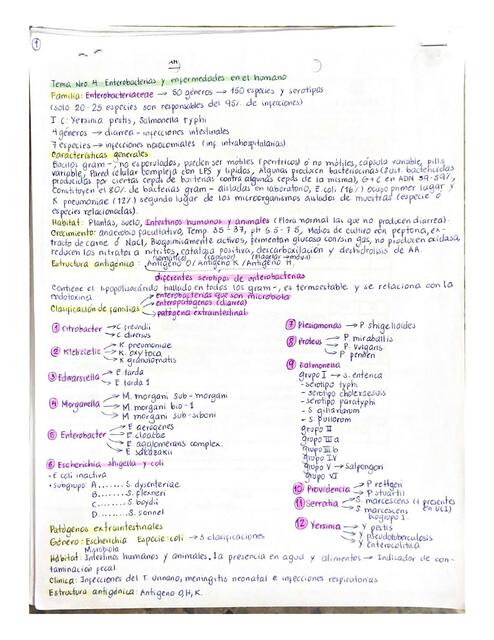 1
Tema Nro 4. Enterobacterias y enfermedades en el humano
Familia: Enterobacteriaceae → 50 géneros → 150 especies y serotipos
(solo 20-25 especies son responsables del 95% de infecciones)
I C: Yersinia pestis, Salmonella typhi
4 géneros → diarrea - infecciones intestinales
7 especies → infecciones nosocomiales (inf. intrahospitalarias)
Características generales
Bacilos gram-, no esporulados, pueden ser móviles (peritricos) ó no móviles, cápsula variable, pilis
variable, Pared celular compleja con LPS y lípidos, Algunas producen bacteriocinas (sust. bactericidas
producidas por ciertas cepas de bacterias contra algunas cepas de la misma), G+C en ADN 39-59%,
Constituyen el 80% de bacterias gram- aisladas en laboratorio, E. coli (76%) ocupo primer lugar y
K pneumoniae (12%) segundo lugar de los microorganismos aislados de muestras (especie ó
especies relacionadas).
Habitat: Plantas, suelo, Intestinos humanos y animales (Flora normal las que no producen diarrea)
Crecimiento: anaerobio facultativo, Temp. 35-37, pH 6.5-7.5, Medios de cultivo con peptona, ex-
tracto de carne ó NaCl, Bioquimicamente activos, fermentan glucosa con/sin gas, no producen oxidasa,
reducen los nitratos a nitritos, catalasa positiva, descarboxilación y deshidrolisis de AA.
Estructura antigénica: Antígeno O/Antígeno K/Antígeno H,
diferentes serotipos de enterobacterias
Contiene el lipopolisacárido hallado en todos los gram-, es termoestable y se relaciona con la
endotoxina
enterobacterias que son microbiota
enteropatógenos (diarrea)
patógena extraintestinal
Clasificación de familias
1 Citrobacter → C freundii
C diversus
2 Klebsielle → K pneumoniae
K. oxytoca
K granulomatis
3 Edwarsiella → E. tarda
E tarda 1
4 Morganella → M. morgani sub-morgani
M. morgani bio-1
M morgani sub-siboni
5 Enterobacter → E aerogenes
E cloacae
E agglomerans complex.
E sakazakii
6 Escherichia shigella y coli
• E coli inactiva
• Subgrupo: A....... S dysenteriae
B....... S. flexneri
C....... S boydii
D....... S sonnei
7 Plesiomonas → P shigelloides
8 Proteus → P mirabilis
P vulgaris
P penneri
9 Salmonella
grupo I → S. enterica
- serotipo typhi
- serotipo choleraesuis
- serotipo paratyphi
- S gallinarum
- S pullorum
grupo II
grupo III a
grupo III b
grupo IV
grupo V → S. bongori
grupo VI
10 Providencia → P rettgeri
P stuartii
11 Serratia → S. marcescens (1 presentes en UCI)
S marcescens biogrupo 1
12 Yersinia → Y pestis
Y pseudotuberculosis
Y enterocolitica
Patógenos extraintestinales
Género: Escherichia Especie: coli → 5 clasificaciones
Microbiota
Hábitat: Intestinos humanos y animales. la presencia en agua y alimentos → Indicador de con-
taminación fecal
Clínica: Infecciones del T. urinario, meningitis neonatal e infecciones respiratorias
Estructura antigénica: Antígeno O,H,K.